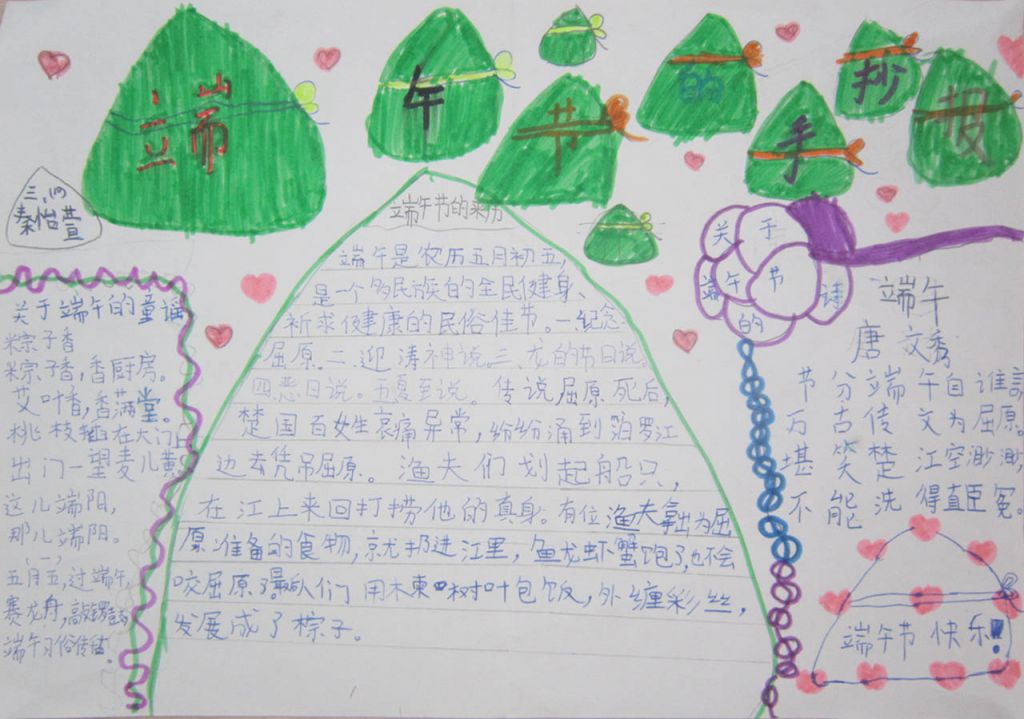 端午节的手抄报
三.(四)
秦怡萱
端午节的来历
端午是农历五月初五,
是一个多民族的全民健身、
祈求健康的民俗佳节。一.纪念
屈原.二.迎涛神说.三.龙的节日说.
四.恶日说.五夏至说。传说屈原死后,
楚国百姓哀痛异常,纷纷涌到汨罗江
边去凭吊屈原。渔夫们划起船只,
在江上来回打捞他的真身。有位渔夫拿出为屈
原准备的食物,
扔进江里,鱼龙虾蟹饱了,也不会
咬屈原了。
人们用木
树叶包饭,外缠彩丝,
发展成了棕子。
关于端午的童谣
粽子香
粽子香,香厨房。
艾叶香,香满堂。
桃枝插在大门上
出门一望麦儿黄
这儿端阳,
那儿端阳。
(一)
五月五,过端午,
赛龙舟,
端午习俗传
关于端午节的诗
端午
唐 文秀
节分端午自谁言
万古传文为屈原。
堪笑楚江空渺渺,
不能洗得直臣冤。
端午节快乐!